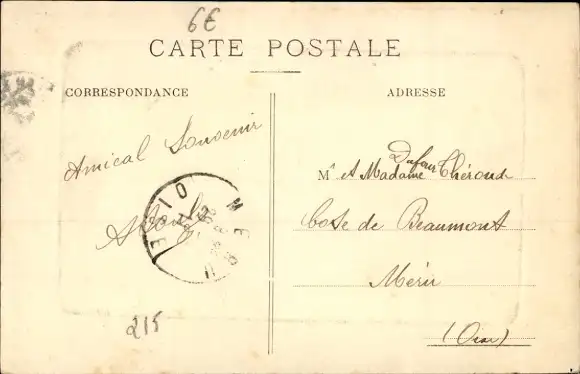 6€
CARTE POSTALE
CORRESPONDANCE
ADRESSE
Amical Souvenir
Mr et Madame Dufour Théroud
Cote de Beaumont
Méru
(Oise)
MERU
OISE
215